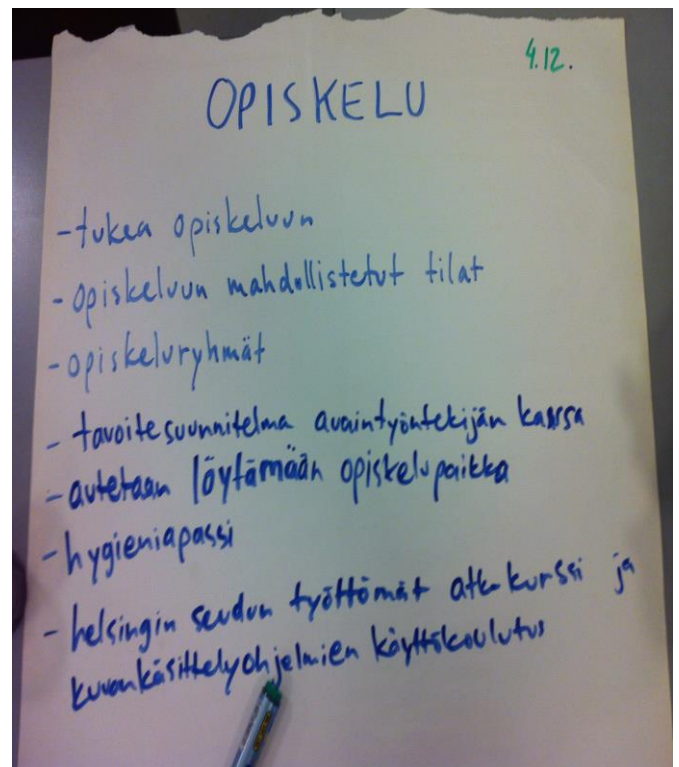 4.12.
OPISKELU
-tukea opiskeluun
-opiskeluun mahdollistetut tilat
-opiskeluryhmät
- tavoitesuunnitelma avaintyöntekijän kanssa
-autetaan löytämään opiskelupaikka
-hygieniapassi
- helsingin seudun työttömät atk-kurssi ja
kuvankäsittelyohjelmien käyttökoulutus